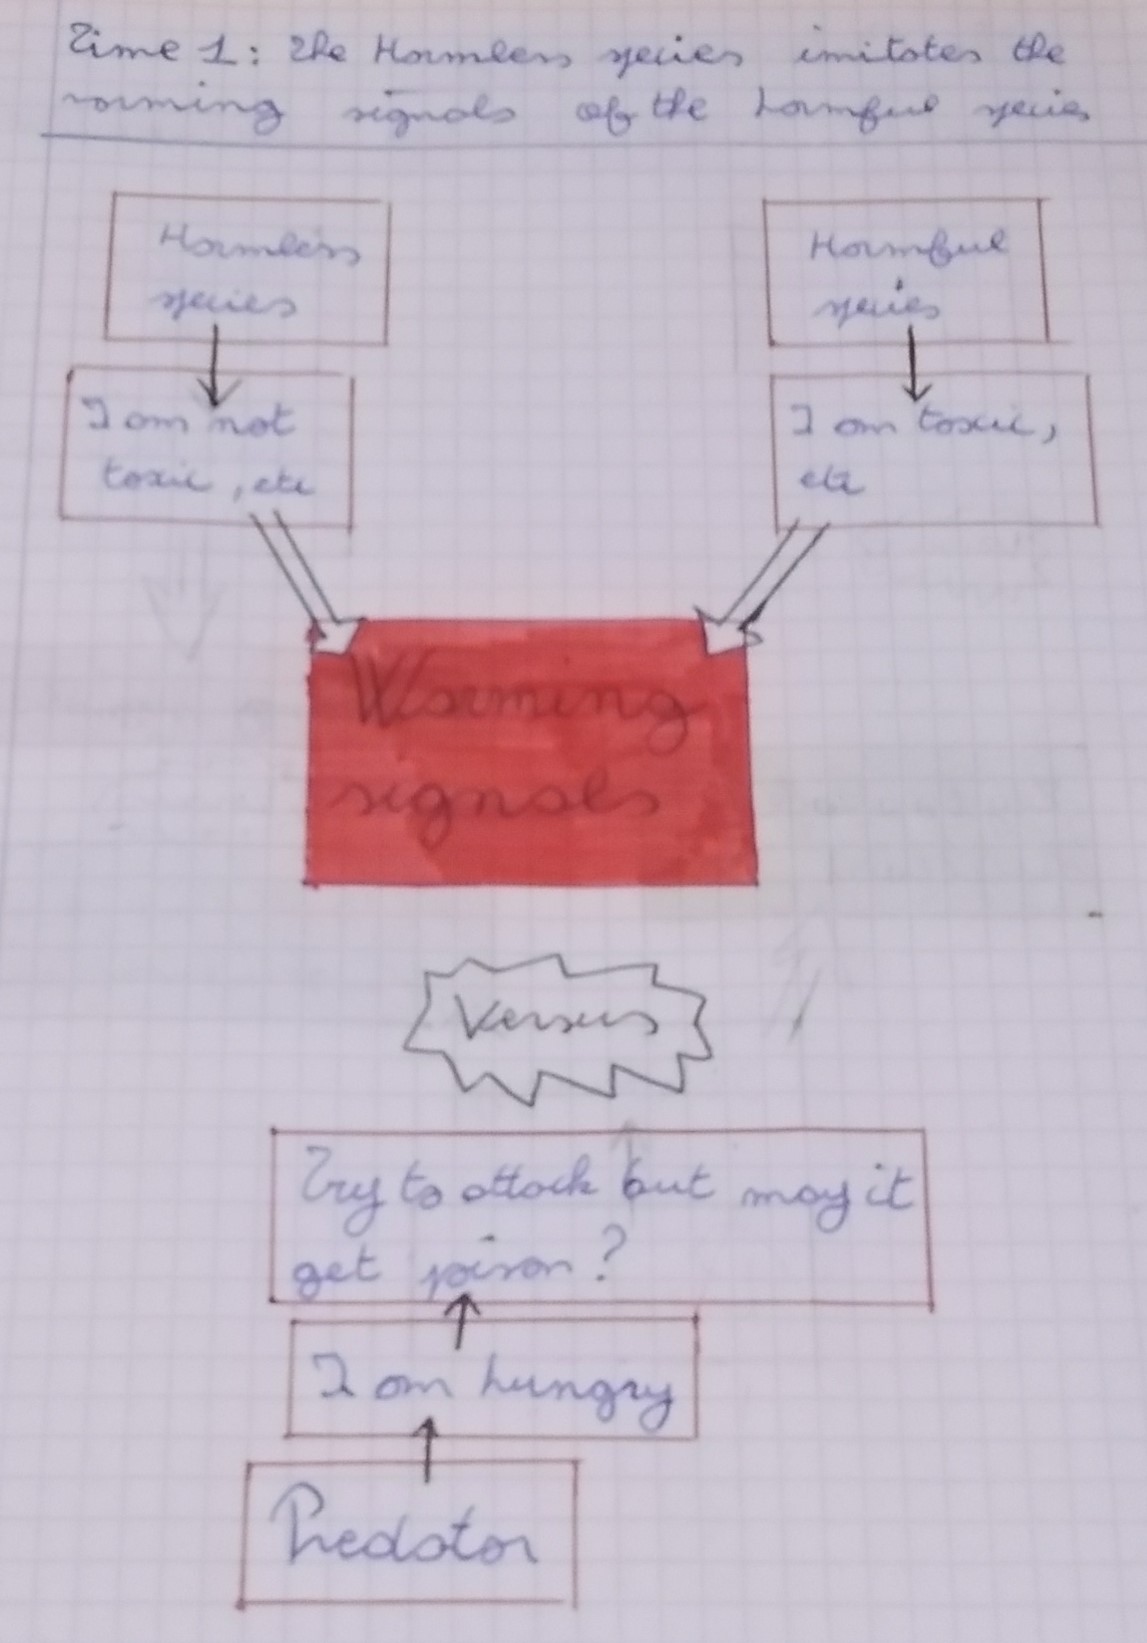 Time 1: The Harmless species imitates the
warning signals of the harmful species
Harmless
species
Harmful
species
I am not
toxic, etc
I am toxic,
etc
Warning
signals
Versus
Try to attack but may it
get poison?
I am hungry
Predator